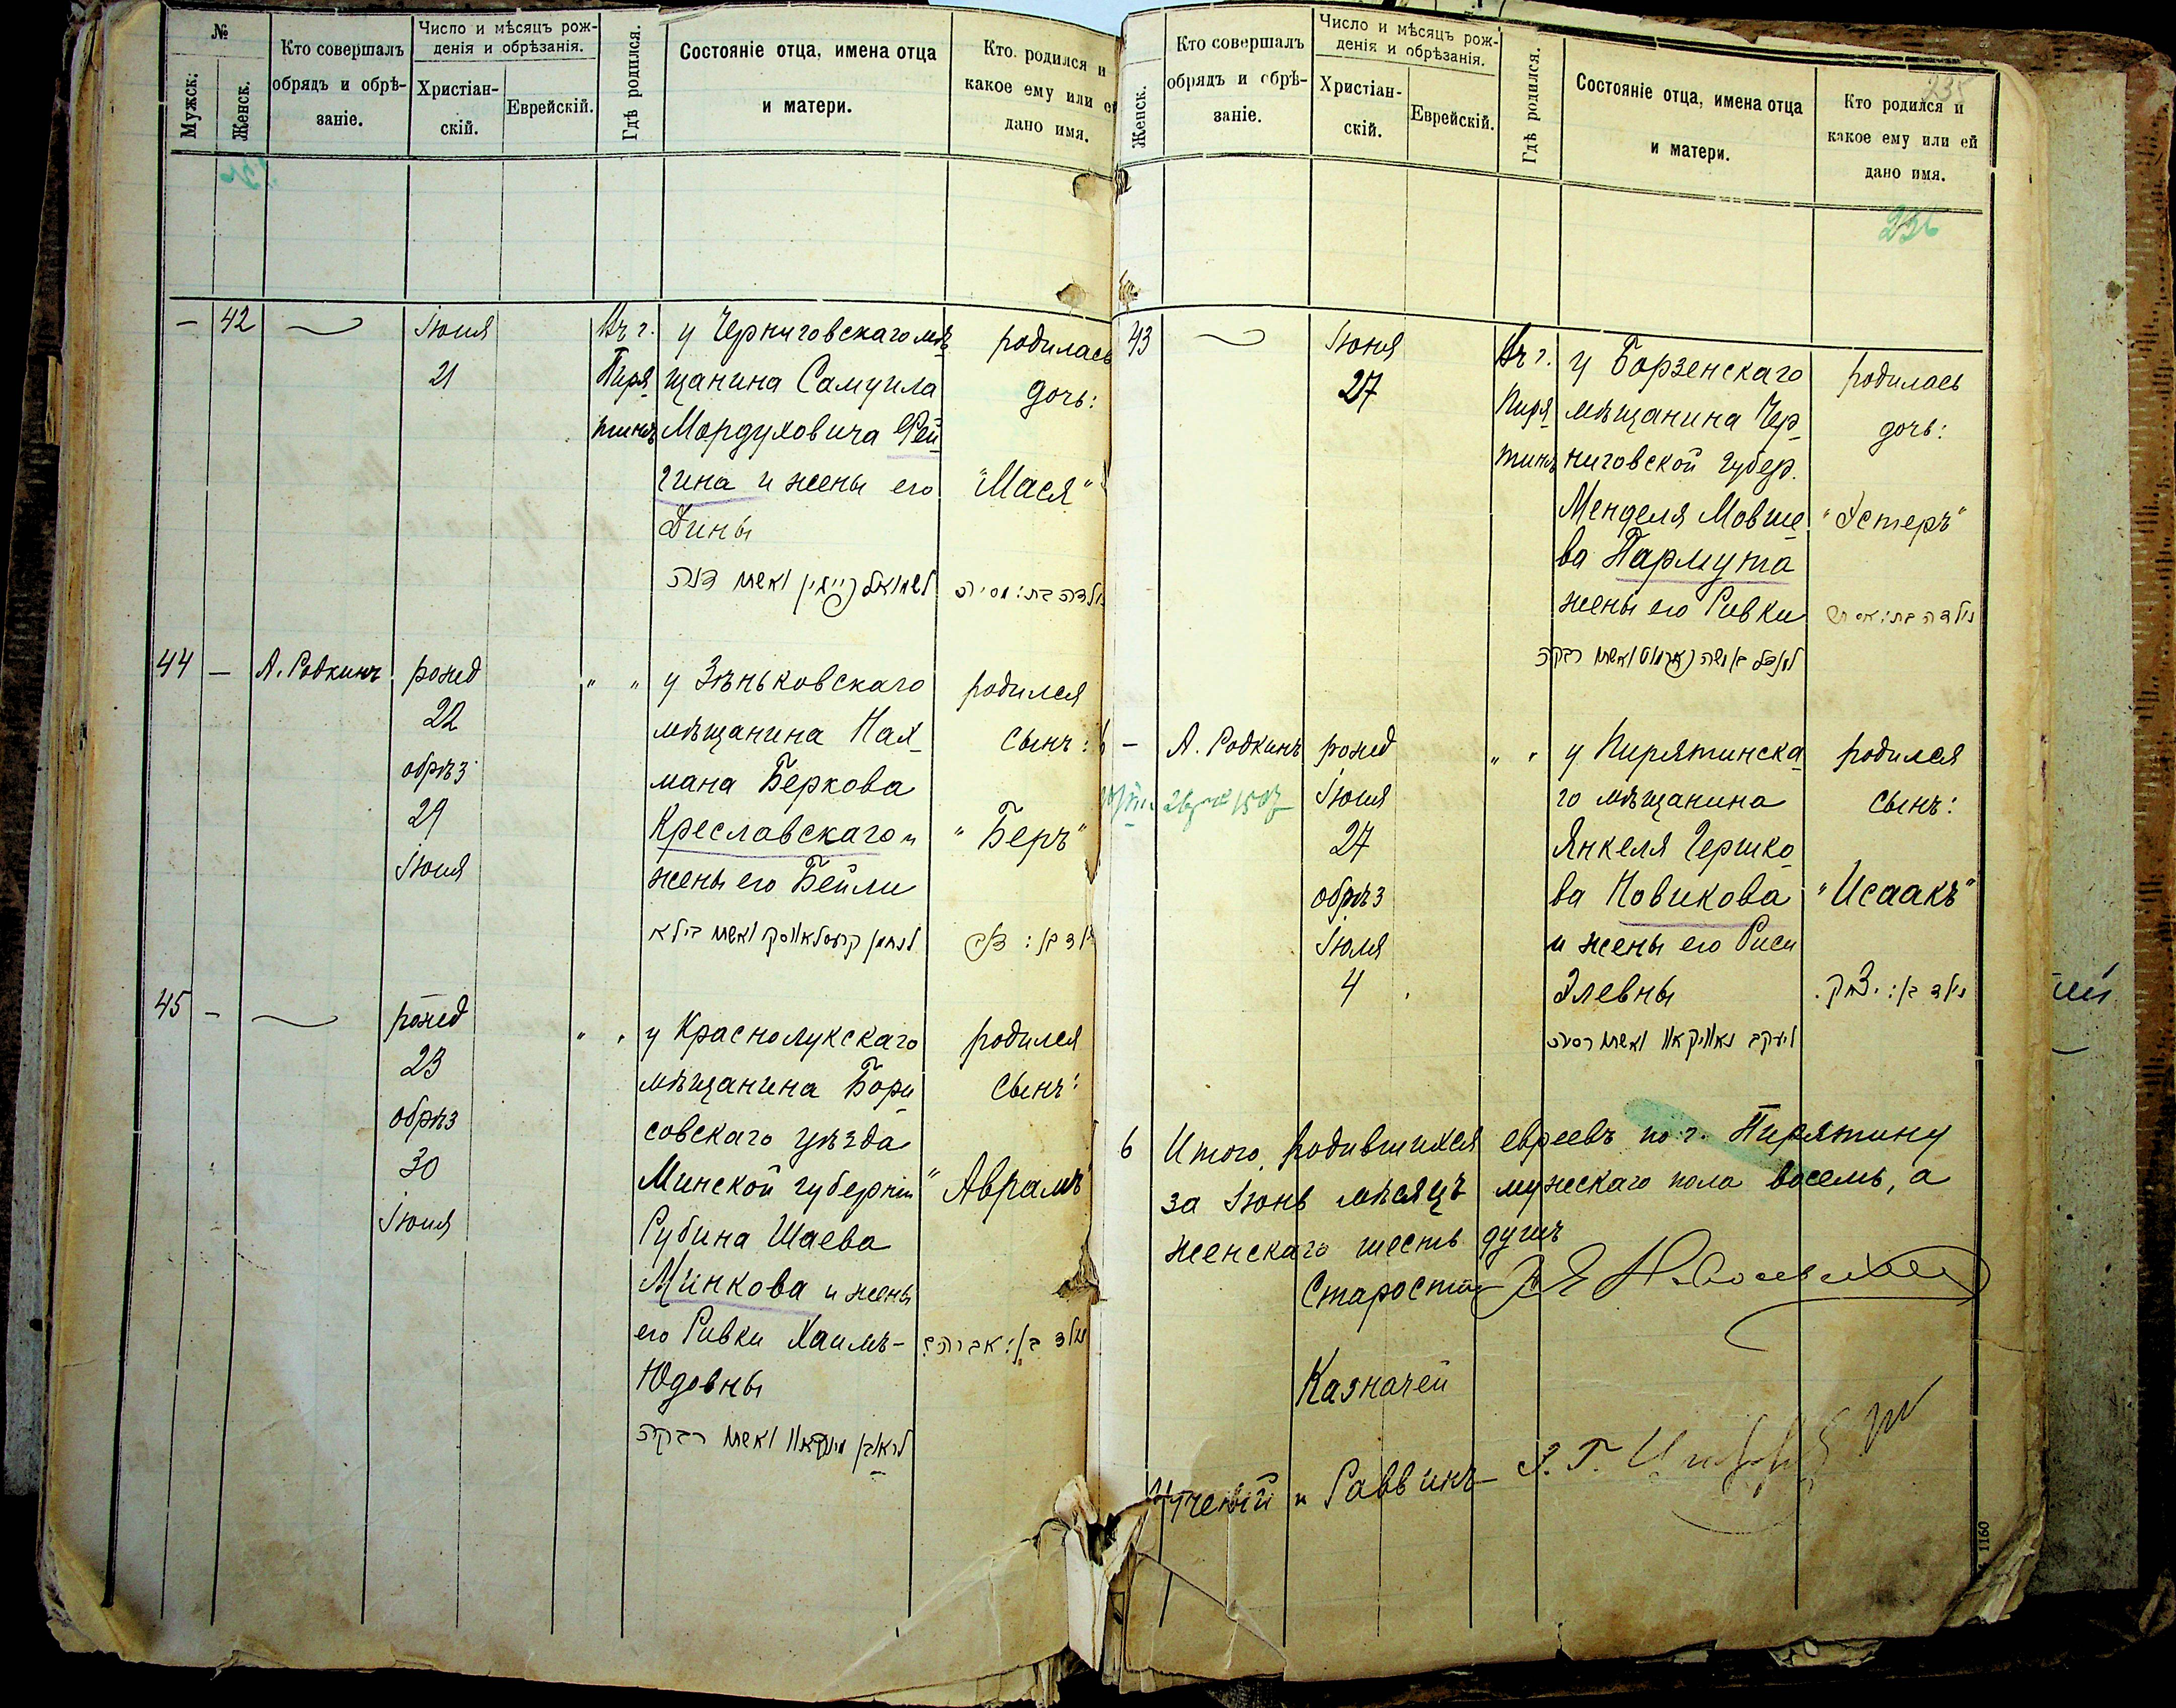 №
Мужск.
Женск.
Кто совершалъ
обрядъ и обрѣ-
заніе.
Число и мѣсяцъ рож-
денія и обрѣзанія.
Христіан-
скій.
Еврейскій.
Гдѣ родился.
Состояніе отца, имена отца
и матери.
Кто родился и
какое ему или ей
дано имя.
— 42
Іюня
21
Въ г.
Пиря
тинѣ
у Черниговскаго мѣ
щанина Самуила
Мордуховича Рей
гина и жены его
Дины
родилась
дочь:
"Мася"
44 —
А. Родкинъ
рожд
22
обрѣз
29
Іюня
" "
у Зѣньковскаго
мѣщанина Нах
мана Беркова
Креславскаго и
жены его Бейли
родился
сынъ:
"Беръ"
45 -
рожд
23
обрѣз
30
Іюня
" "
у Краснолукскаго
мѣщанина Бори
совскаго уѣзда
Минской губерніи
Рубина Шаева
Минкова и жены
его Ривки Хаимъ-
Юдовны
לראובן מינקאוו ואשתו רבקה
родился
сынъ:
"Аврамъ"
נולד בן: אברהם
Женск.
Кто совершалъ
обрядъ и обрѣ-
заніе.
Число и мѣсяцъ рож-
денія и обрѣзанія.
Христіан-
скій.
Еврейскій.
Гдѣ родился.
Состояніе отца, имена отца
и матери.
Кто родился и
какое ему или ей
дано имя.
235
236
43
Іюня
27
Въ г.
Пиря
тинѣ
у Борзенскаго
мѣщанина Чер
ниговской губер.
Менделя Мовше
ва Пармута
жены его Ривки
родилась
дочь:
"Эстеръ"
—
А. Родкинъ
рожд
Іюня
27
обрѣз
Іюля
4
" "
у Пирятинска
го мѣщанина
Янкеля Гершко
ва Новикова
и жены его Риси
Элевны
ליעקב נאוויקאוו ואשתו ריסיה
родился
сынъ:
"Исаакъ"
נולד בן: יצחק.
6
Итого родившихся евреевъ по г. Пирятину
за Іюнь мѣсяцъ мужскаго пола восемь, а
женскаго шесть душъ
Староста
Казначей
Ученый и Раввинъ
1160